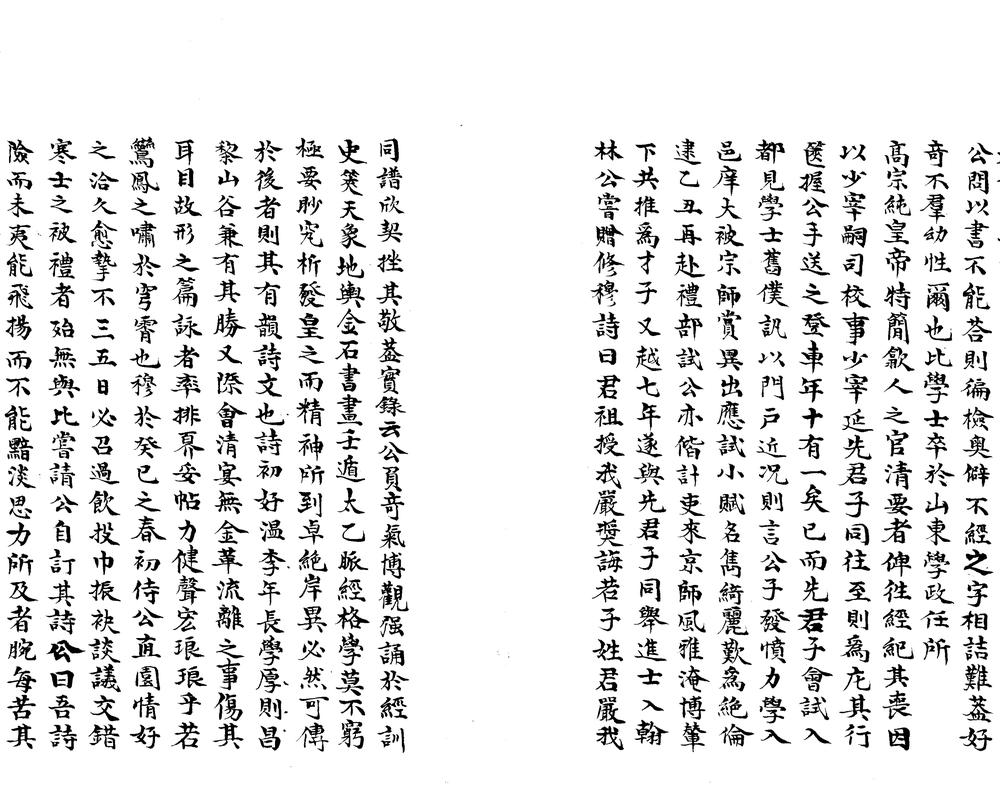 公問以書不能荅則徧檢奥僻不經之字相詰難葢好
奇不羣幼性爾也比學士卒於山東學政任所
高宗純皇帝特簡歙人之官清要者俾徃經紀其喪因
以少宰嗣司校事少宰延先君子同往至則為庀其行
篋握公手送之登車年十有一矣已而先君子會試入
都見學士舊僕訊以門戶近况則言公子發憤力學入
邑庠大被宗師賞異出應試小賦名雋綺麗歎為絕倫
逮乙丑再赴禮部試公亦偕計吏來京師風雅淹博輦
下共推為才子又越七年遂與先君子同舉進士入翰
林公嘗贈修穆詩曰君祖授我嚴奬誨若子姓君嚴我
同譜欣契挫其敬葢實錄云公負奇氣博觀强誦於經訓
史筴天象地輿金石書畫壬遁太乙脈經格學莫不窮
極要眇究析發皇之而精神所到卓絕岸異必然可傳
於後者則其有韻詩文也詩初好溫李年長學厚則昌
黎山谷兼有其勝又際會清宴無金革流離之事傷其
耳目故形之篇詠者率排奡妥帖力健聲宏琅琅乎若
鸞鳳之嘯於穹霄也穆於癸巳之春初侍公直園情好
之洽久愈摯不三五日必召過飲投巾振袂談議交錯
寒士之被禮者殆無與比嘗請公自訂其詩公曰吾詩
險而未夷能飛揚而不能黯淡思力所及者腕每苦其